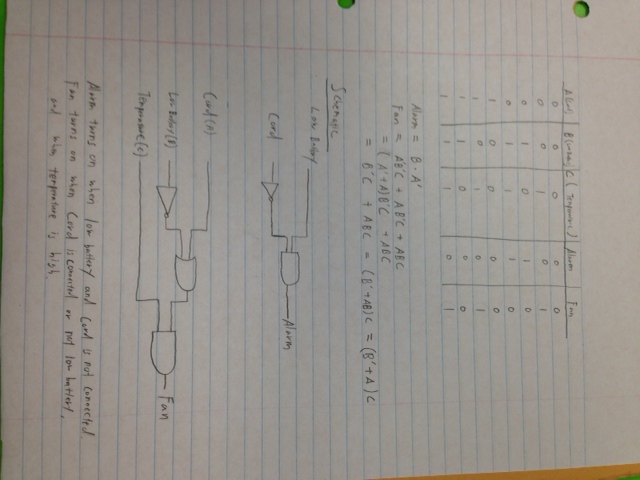 A(Cord) B( C( Temperature) Alarm Fan
0 0 0 0 0
0 0 1 0 1
0 1 0 1 0
0 1 1 1 0
1 0 0 0 0
1 0 1 0 1
1 1 0 0 0
1 1 1 0 1
Alarm = B · A'
Fan = A'B'C + AB'C + ABC
= (A'+A)B'C + ABC
= B'C + ABC = (B'+AB)C = (B'+A)C
Schematic
Low Battery
Cord
Alarm
Cord(A)
Low Battery(B)
Temperature(C)
Fan
Alarm turns on when low battery and Cord is not connected
Fan turns on when Cord is connected or not low battery,
and when temperature is high.